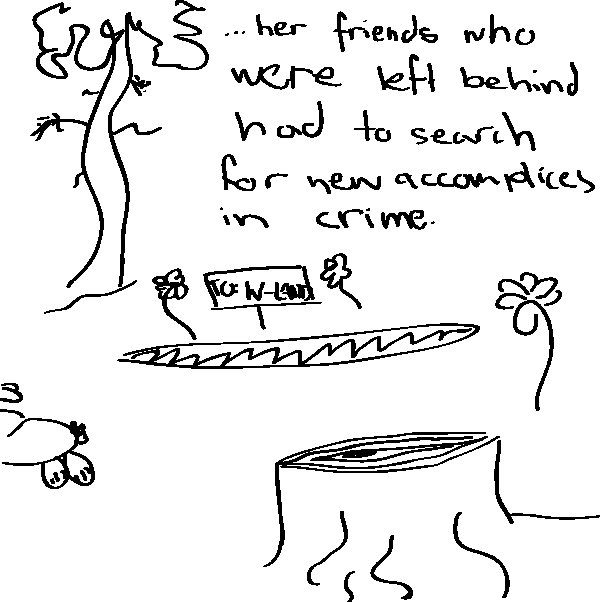 ...her friends who
were left behind
had to search
for new accomplices
in crime.
TO: W-LAND